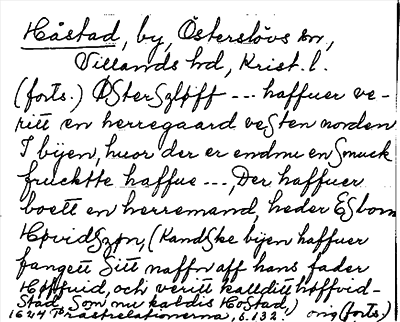 Håstad, by, Österslövs sn,
Villands hd, Krist. l.
(forts.) ØsterSzløff --- haffuer ve-
ritt en herregaard veSten norden
I bÿen, huor der er endnu en Smuck
fruchtte haffue ---, Der haffuer
boett en herremand, heder Esborn
HøvidSzøn, (KandSke bÿen haffuer
fangett Sitt naffn aff hans fader
Høffuid, och veritt kallditt høffvid-
Stad, Som nu kaldis HoStad,)
1624 Prästrelationerna, s. 132. orig (forts.)